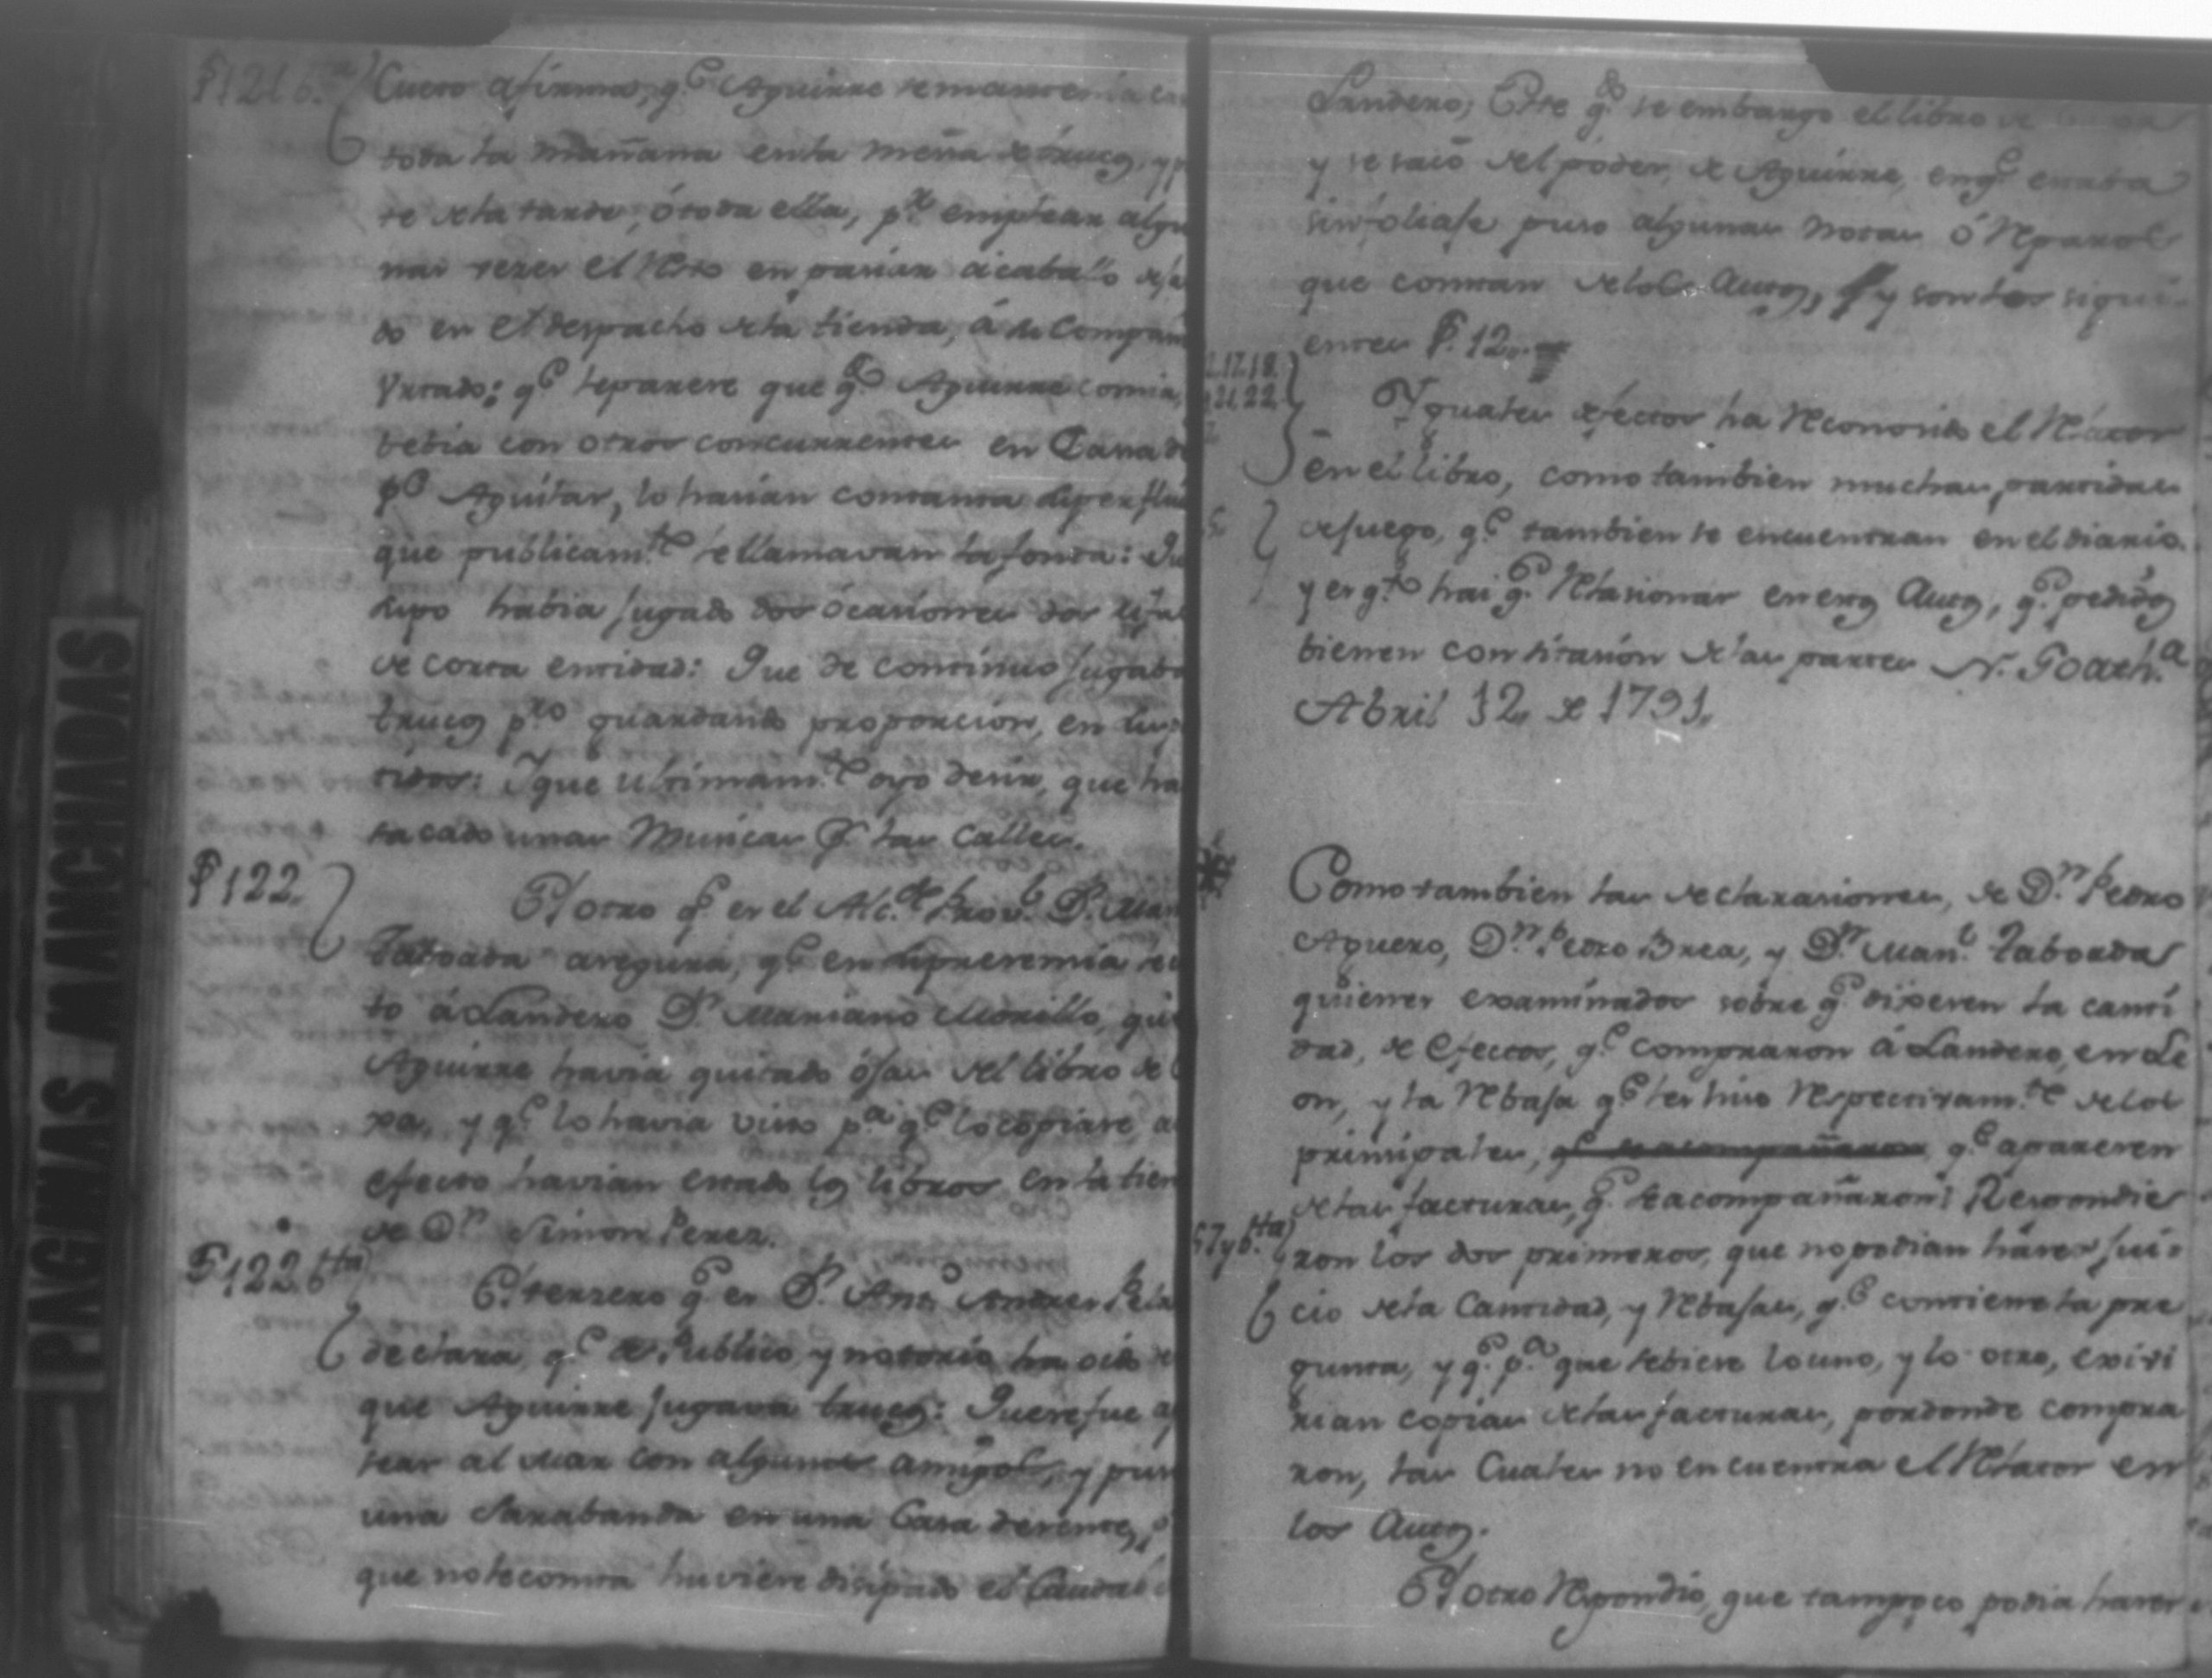 PAGINAS MANCHADAS
f 121 b.ta
Cuero afirma, q.e Aguirre se mantenia en
toda la mañana en la mesa de trucos, y p
te de la tarde, ó toda ella, p.r emplear algu
nas veses el resto en pasiar á caballo
do en el despacho de la tienda, á de Compañ
Yurado: q.e le parese que q.do Aguirre comia,
bebia con otros concurrentes en Casa de
p.e Aguilar, lo harian con tanta
que publicam.te le llamavan la fonda: Qu
supo habia jugado dos ócasiones dos
de corta entidad: Que de continuo jugaba
trucos p.ro guardando proporcion, en
tidos: Y que ultimam.te oyo desir, que ha
sacado unas Musicas p.r las Calles.
f 122.
El otro q.e es el Alc.de Prov.l D.n Man
Taboada asegura, q.e en su presensia
to á Landero D.n Mariano Morillo, que
Aguirre havia quitado ójas del libro de
xa, y q.e lo havia visto p.a q.e lo copiase, a
efecto havian estado los libros en la tien
de D.n Simon Perez.
f 122 b.ta
El tersero q.e es D.n Ant.o Andres Pela
declara, q.e de Publico y notorio ha oido
que Aguirre jugava trucos: Que se fue a
sear al mar con algunos amigos, y puso
una Sarabanda en una Casa desente,
que no le consta huviere disipado el Caudal
Landero; Este q.do se embargo el libro de
y se sacó del poder de Aguirre, en q.e estaba
sin foliase puso algunas notas ó reparos
que constan de los Autos, y son los sigui-
entes f. 12.
2.17.18.
21.22
Yguales defectos ha reconosido el relator
en el libro, como tambien muchas partidas
de juego, q.e tambien se encuentran en el diario.
y es q.to hai q.e relasionar en estos Autos, q.e pedidos
bienen con sitasion de las partes N. Goath.a
Abril 12,, de 1791,,
Como tambien las declarasiones, de D.n Pedro
Aguero, D.n Pedro Brea, y D.n Man.l Taboada
quienes examinados sobre q.e dixesen la canti
dad, de Efectos, q.e compraron á Landero, en Le
on, y la rebaja q.e les hiso respectivam.te de los
prinsipales, q.e apareren
de las facturas, q.e le acompañaron: Respondie
57 y b.ta
ron los dos primeros, que no podian háser jui-
cio de la Cantidad, y rebajas, q.e contiene la pre
gunta, y q.e p.a que se biese lo uno, y lo otro, exivi
rian copias de las facturas, por donde compra
ron, las Cuales no encuentra el relator en
los Autos.
El otro respondió, que tampoco podia haser